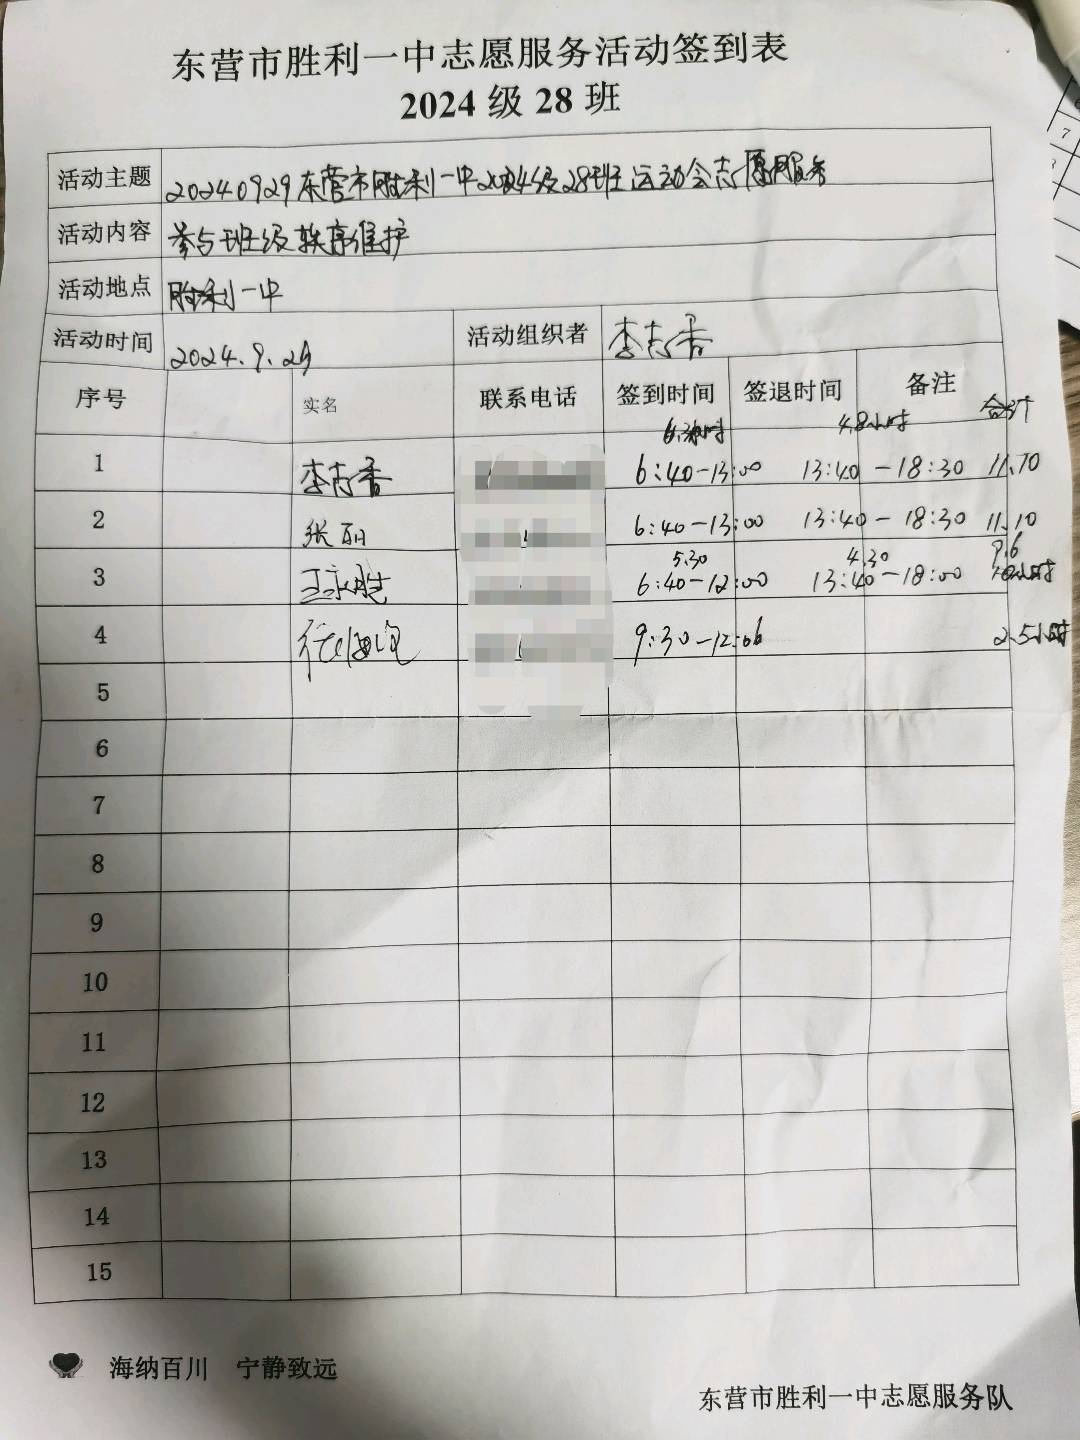 东营市胜利一中志愿服务活动签到表
2024 级 28 班
活动主题 20240929东营市胜利一中2024级28班运动会志愿服务
活动内容 参与班级秩序维护
活动地点 胜利一中
活动时间 2024.9.29 活动组织者 李志香
序号 实名 联系电话 签到时间 签退时间 备注 合计
4.8小时
1 李志香 6:40-13:00 13:40-18:30 11.10
2 张丽 6:40-13:00 13:40-18:30 11.10
5.30 4.30 9.6
3 王永胜 6:40-12:00 13:40-18:00
4 9:30-12:00 2.5小时
5
6
7
8
9
10
11
12
13
14
15
海纳百川 宁静致远
东营市胜利一中志愿服务队